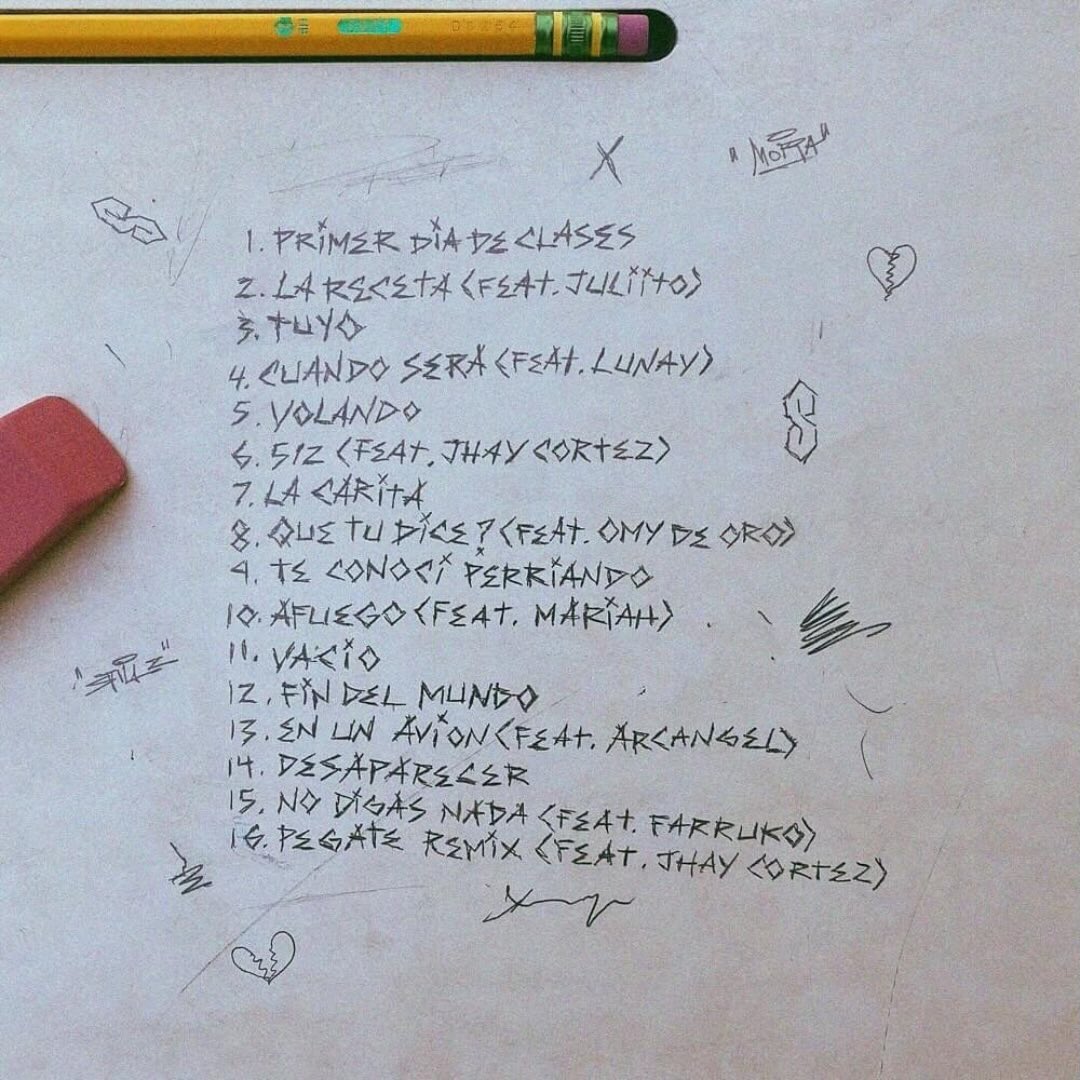 X
"MORA"
1. PRIMER DIA DE CLASES
2. LA RECETA (FEAT. JULIITO)
3. TUYO
4. CUANDO SERÁ (FEAT. LUNAY)
5. VOLANDO
6. 512 (FEAT. JHAY CORTEZ)
7. LA CARITA
8. QUE TU DICE? (FEAT. OMY DE ORO)
9. TE CONOCÍ PERRIANDO
10. AFUEGO (FEAT. MARIAH)
11. VACIO
12. FIN DEL MUNDO
13. EN UN AVION (FEAT. ARCANGEL)
14. DESAPARECER
15. NO DIGAS NADA (FEAT. FARRUKO)
16. PEGATE REMIX (FEAT. JHAY CORTEZ)